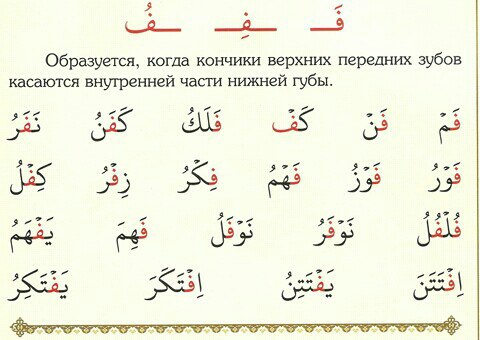 فَـ ـفِـ ـفُ
Образуется, когда кончики верхних передних зубов
касаются внутренней части нижней губы.
فَمْ فَنْ كَفْ فَلَكُ كَفَنُ نَفَرُ
فَوْرُ فَوْزُ فَهْمُ فِكْرُ زِفْرُ كِفْلُ
فُلْفُلُ نَوْفَرُ نَوْفَلُ فَهِمَ يَفْهَمُ
اِفْتَتَنَ يَفْتَتِنُ اِفْتَكَرَ يَفْتَكِرُ